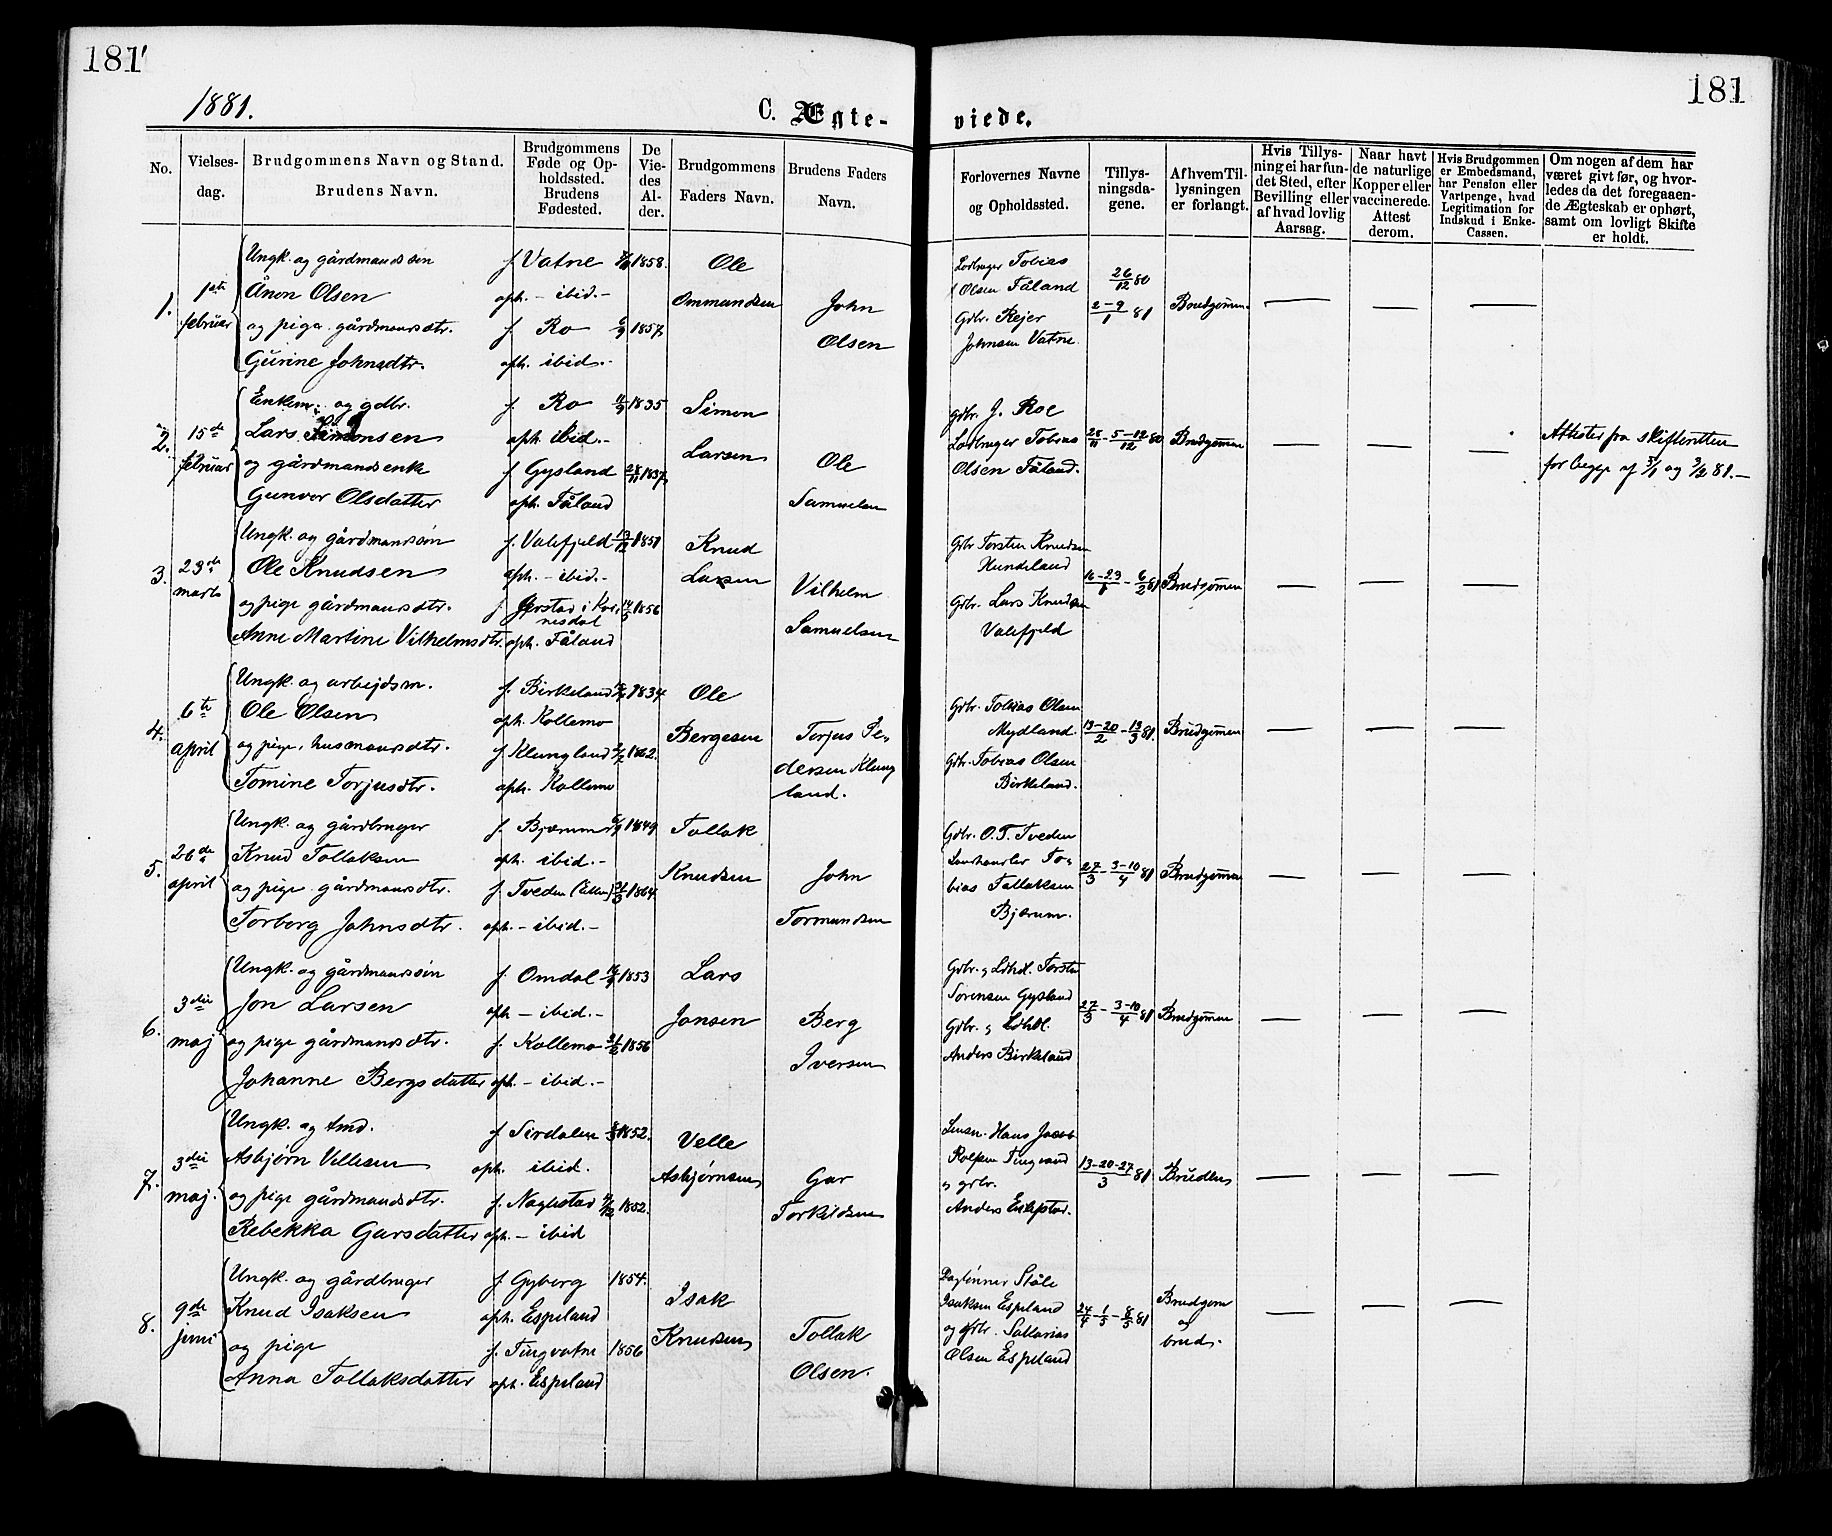 181
181
1881.
C. Ægte- viede.
No.
Vielses-
dag.
Brudgommens Navn og Stand.
Brudens Navn.
Brudgommens
Føde og Op-
holdssted.
Brudens
Fødested.
De
Vie-
des
Al-
der.
Brudgommens
Faders Navn.
Brudens Faders
Navn.
Forlovernes Navne
og Opholdssted.
Tillys-
ningsda-
gene.
Af hvem Til-
lysningen
er forlangt.
Hvis Tillys-
ning ei har fun-
det Sted, efter
Bevilling eller
af hvad lovlig
Aarsag.
Naar havt
de naturlige
Kopper eller
vaccinerede.
Attest
derom.
Hvis Brudgommen
er Embedsmand,
har Pension eller
Vartpenge, hvad
Legitimation for
Indskud i Enke-
Cassen.
Om nogen af dem har
været givt før, og hvor-
ledes da det foregaaen-
de Ægteskab er ophørt,
samt om lovligt Skifte
er holdt.
1.
1ste
februar
Ungk. og gårdmandssøn
Ånon Olsen
og pige gårdmansdtr.
Gurine Johnsdtr.
f. Vatne
oph. - ibid.-
f. Ro
oph. ibid.-
1858.
6/9 1857.
Ole
Ommundsen
John
Olsen
Olsen Tåland
Gdbr. Rejer
Johnsen Vatne.
26/12 80
2-9/1 81
Brudgommen
2.
15de
februar
Enkem. og gdbr.
Lars Simonsen
og gårdmandsenk
Gunvor Olsdatter
f. Ro
oph. ibid.-
f. Gysland
oph. Tåland
1835
28/11 1837.
Simon
Larsen
Ole
Samuelsen
gdbr. J. Roe
Ladbruger Tobias
Olsen Tåland.
28/11 - 5-12/12 80
Brudgommen
Attester fra skifteretten
for begge af 3/1 og 9/2 81.-
3.
23de
marts
Ungk. og gårdmandssøn
Ole Knudsen
og pige gårdmansdtr.
Anne Martine Vilhelmsdtr.
f. Valefjeld
oph. - ibid.-
f. Gjerstad i Kvi-
nesdal
oph. Tåland
13/12 1851
1856
Knud
Larsen
Vilhelm
Samuelsen
Gdbr Torsten Knudsen
Hundeland
Gdbr. Lars Knudsen
Valefjeld
16-23/1 - 6/2 81
Brudgommen
4.
6te
april
Ungk. og arbejdsm.
Ole Olsen
og pige, husmansdtr.
Tomine Torjusdtr.
f. Birkeland
oph. Kollemo
f. Klungland
oph. Kollemo
1834
1862.
Ole
Bergesen
Torjus Pe-
dersen Klung
land.
Gdbr. Tobias Olsen
Mydland.
Gdbr. Tobias Olsen
Birkeland.
13-20/2 - 13/3 81.
Brudgommen
5.
26de
april
Ungk. og gårdbruger
Knud Tollaksen
og pige gårdmansdtr.
Torborg Johnsdtr.
f. Bjærum
oph. ibid.-
f. Tveden
oph. - ibid.-
1849
1864.
Tollak
Knudsen
John
Tormundsen
Gdbr. O. T. Tveden
Landhandler To-
bias Tollaksen
Bjærum.
27/3 - 3-10/4 81
Brudgommen
6.
3die
maj
Ungk. og gårdmandssøn
Jon Larsen
og pige gårdmandsdtr.
Johanne Bergsdatter
f. Omdal
oph - ibid.-
f. Kollemo
oph. - ibid.-
1853
1856
Lars
Jonsen
Berg
Iversen
Gdbr. & Ldhdl. Torsten
Sørensen Gysland
Gdbr. & Ldhdl.
Anders Birkeland
27/3 - 3-10/4 81
Brudgommen
7.
3die
maj.
Ungk. og tmd.
Asbjørn Vellesen
og pige gårdmandsdtr.
Rebekka Garsdatter
f. Sirdalen
oph. ibid.
f. Naglestad
oph. - ibid
1852.
1852.
Velle
Asbjørnsen
Gar
Torkildsen
Lensm. Hans Jacob
Rolfsen Tingvand
& grbr.
Anders Eskestad.
13-20-27/3 81
Bruden
8.
9de
juni
Ungk. og gårdbruger
Knud Isaksen
og pige
Anna Tollaksdatter
f. Gyberg
oph. Espeland
f. Tingvatne
oph. Espeland
1854.
1856
Isak
Knudsen
Tollak
Olsen.
Daglønner Ståle
Isaksen Espeland
og gdbr. Sallarias
Olsen Espeland
24/4 - 1/5 - 8/5 81
Brudgom
og
brud.